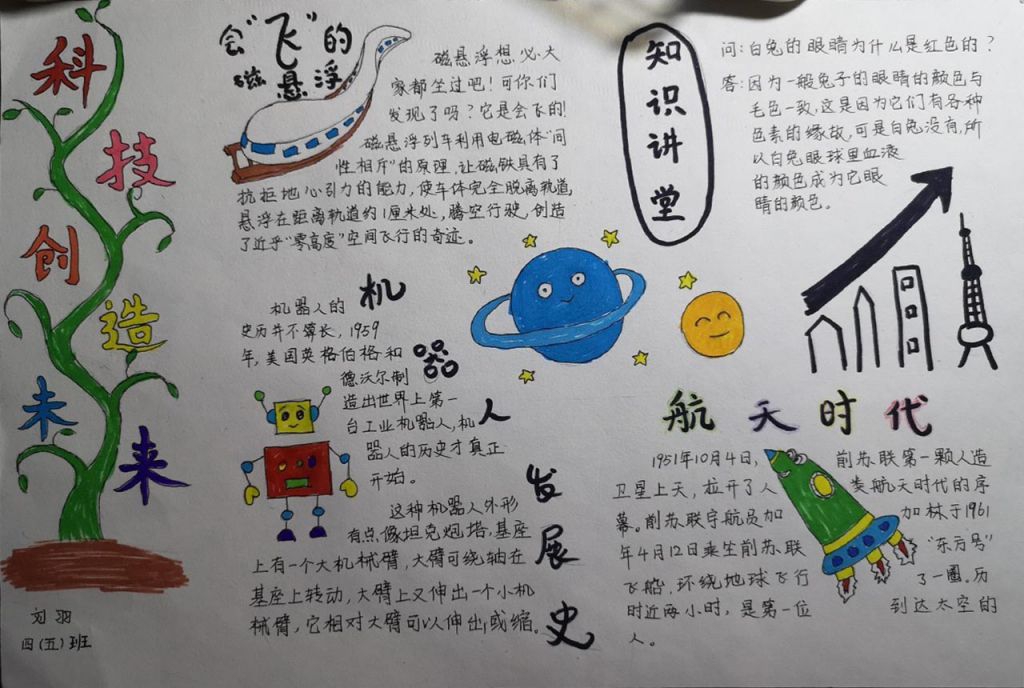 科
技
创
造
未
来
刘羽
四(五)班
会“飞”的
磁悬浮
磁悬浮想必大
家都坐过吧!可你们
发现了吗?它是会飞的!
磁悬浮列车利用电磁体“同
性相斥”的原理,让磁铁具有了
抗拒地心引力的能力,使车体完全脱离轨道,
悬浮在距离轨道约1厘米处,腾空行驶,创造
了近乎“零高度”空间飞行的奇迹。
知
识
讲
堂
问:白兔的眼睛为什么是红色的?
答:因为一般兔子的眼睛的颜色与
毛色一致,这是因为它们有各种
色素的缘故,可是白兔没有,所
以白兔眼球里血液
的颜色成为它眼
睛的颜色。
机
器
人
发
展
史
机器人的
史历并不算长,1959
年,美国英格伯格和
德沃尔制
造出世界上第一
台工业机器人,机
器人的历史才真正
开始。
这种机器人外形
有点像坦克炮塔,基座
上有一个大机械臂,大臂可绕轴在
基座上转动,大臂上又伸出一个小机
械臂,它相对大臂可以伸出或缩。
航天时代
1951年10月4日, 前苏联第一颗人造
卫星上天,拉开了人 类航天时代的序
幕。前苏联宇航员加 加林于1961
年4月12日乘坐前苏联 “东方号”
飞船,环绕地球飞行 了一圈,历
时近两小时,是第一位 到达太空的
人。